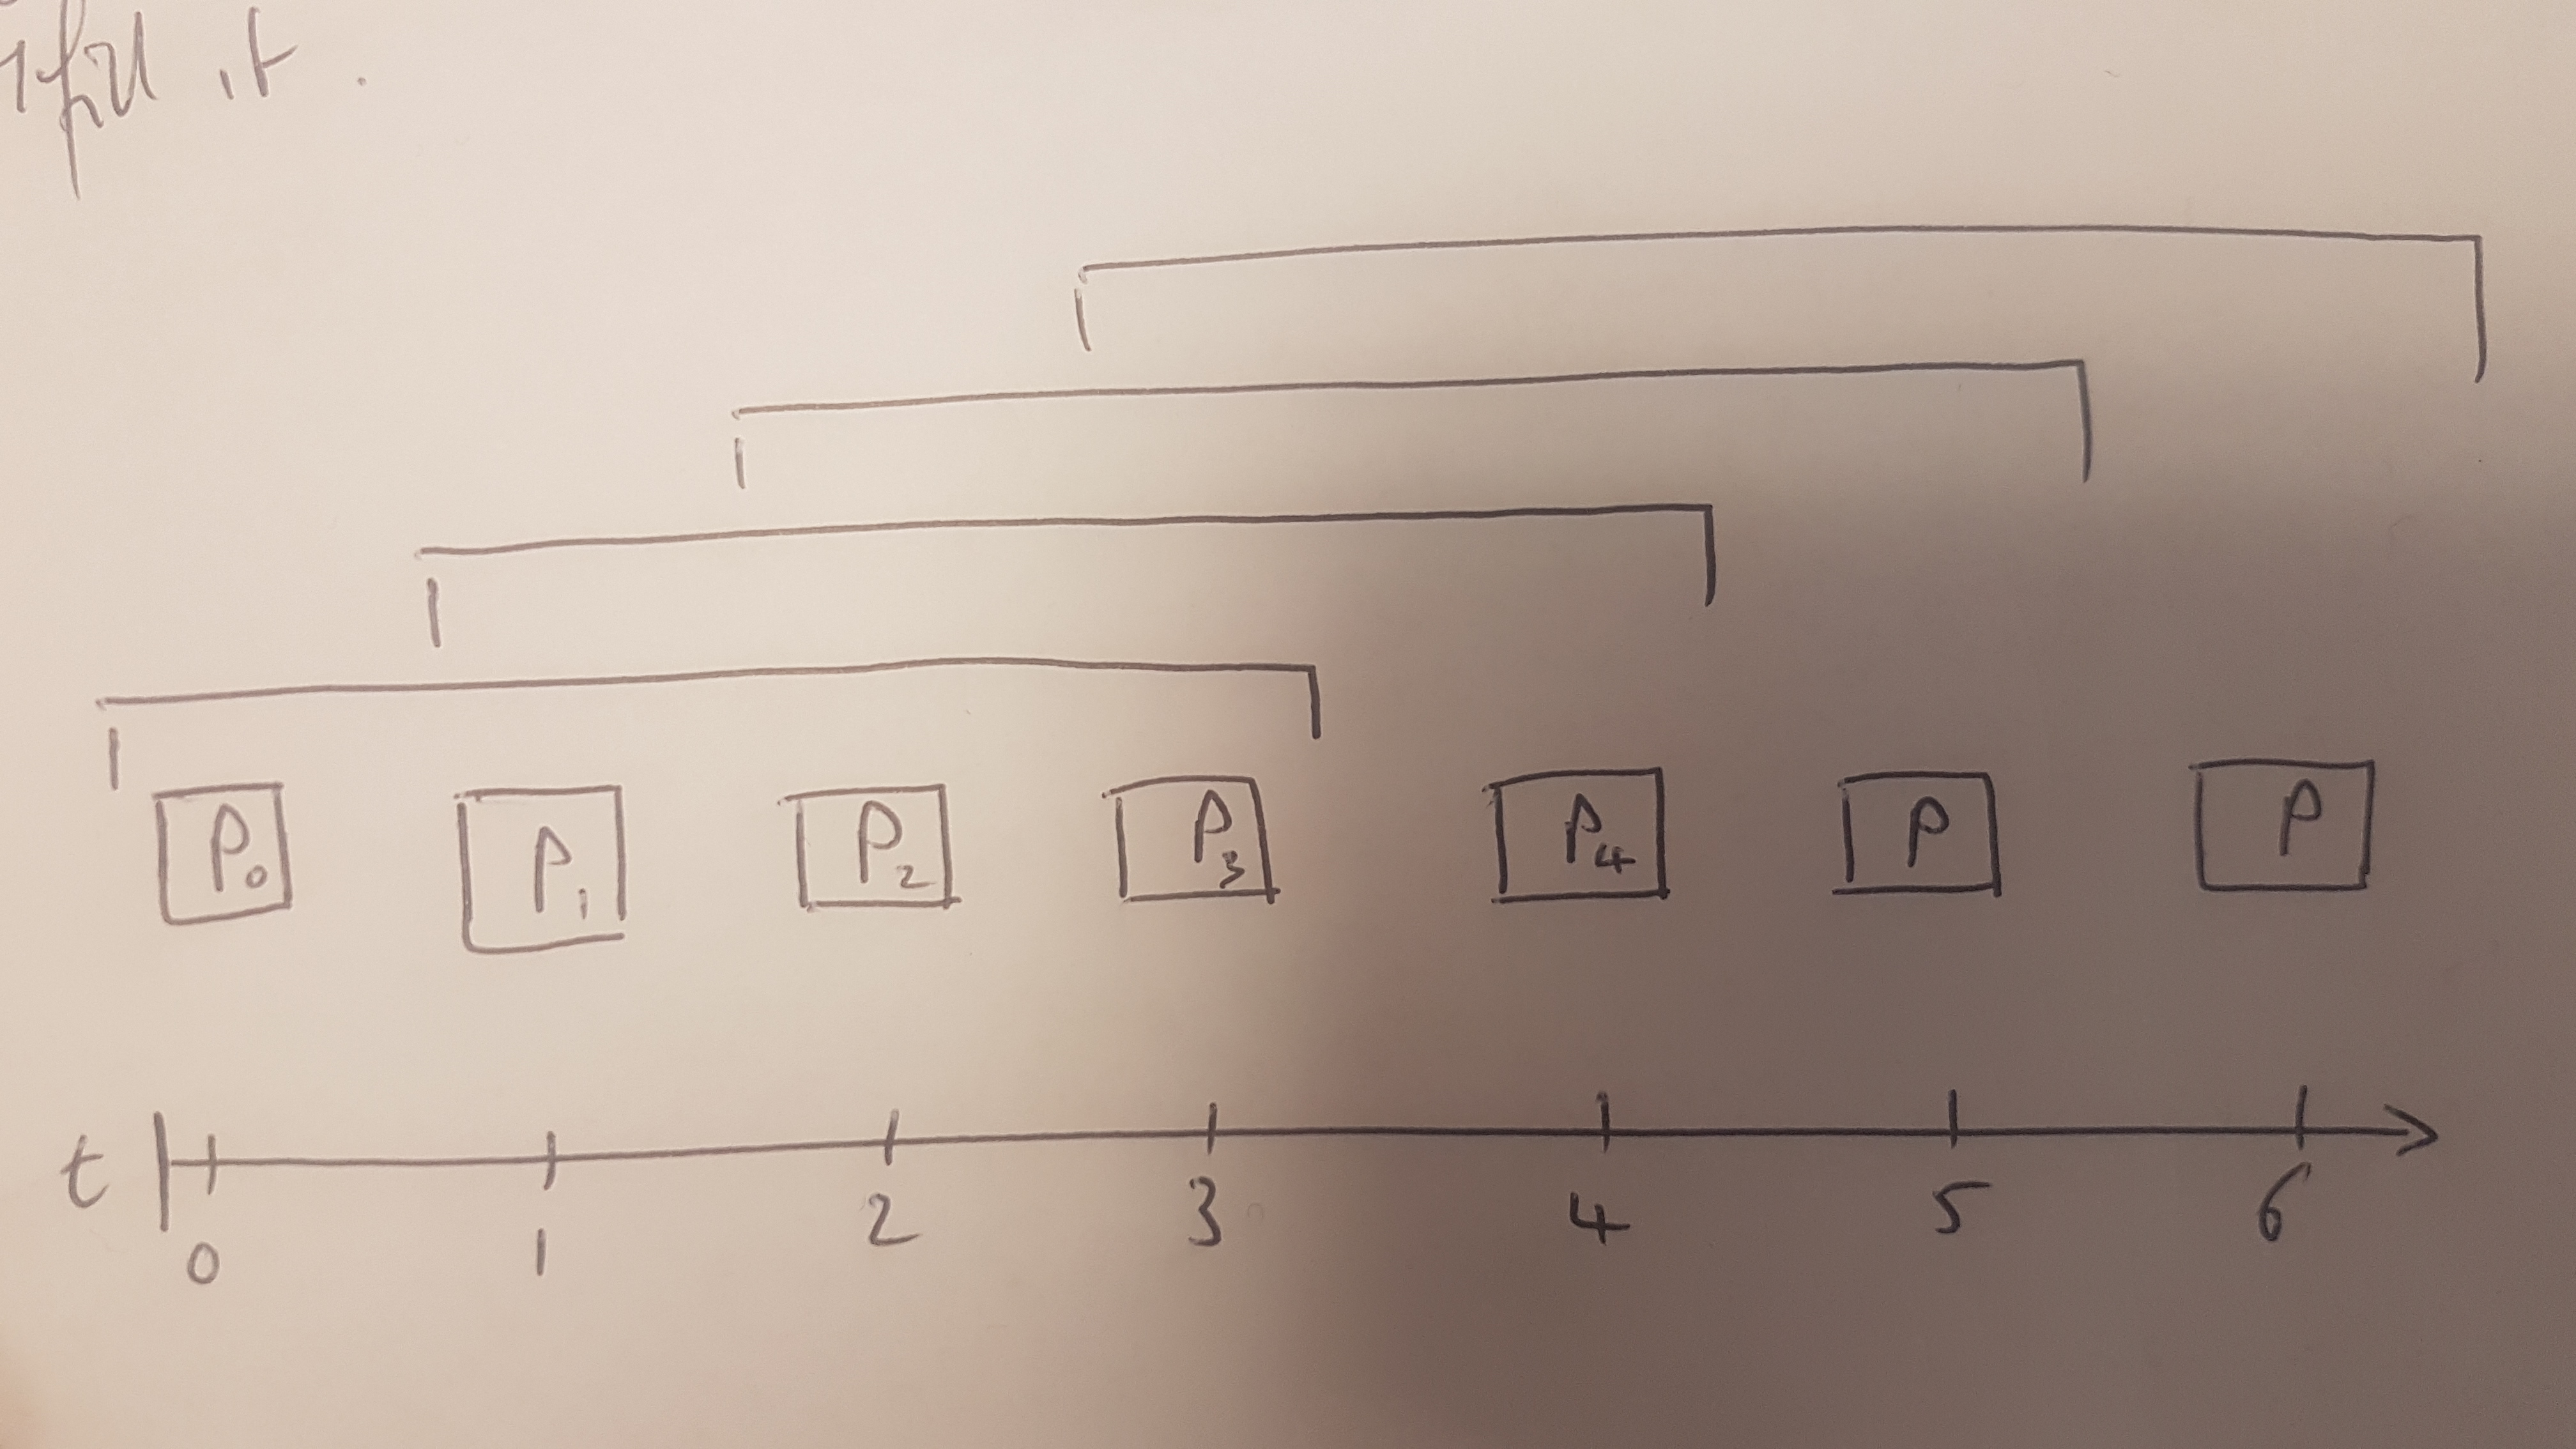 it.
P0 P1 P2 P3 P4 P P
t
0 1 2 3 4 5 6